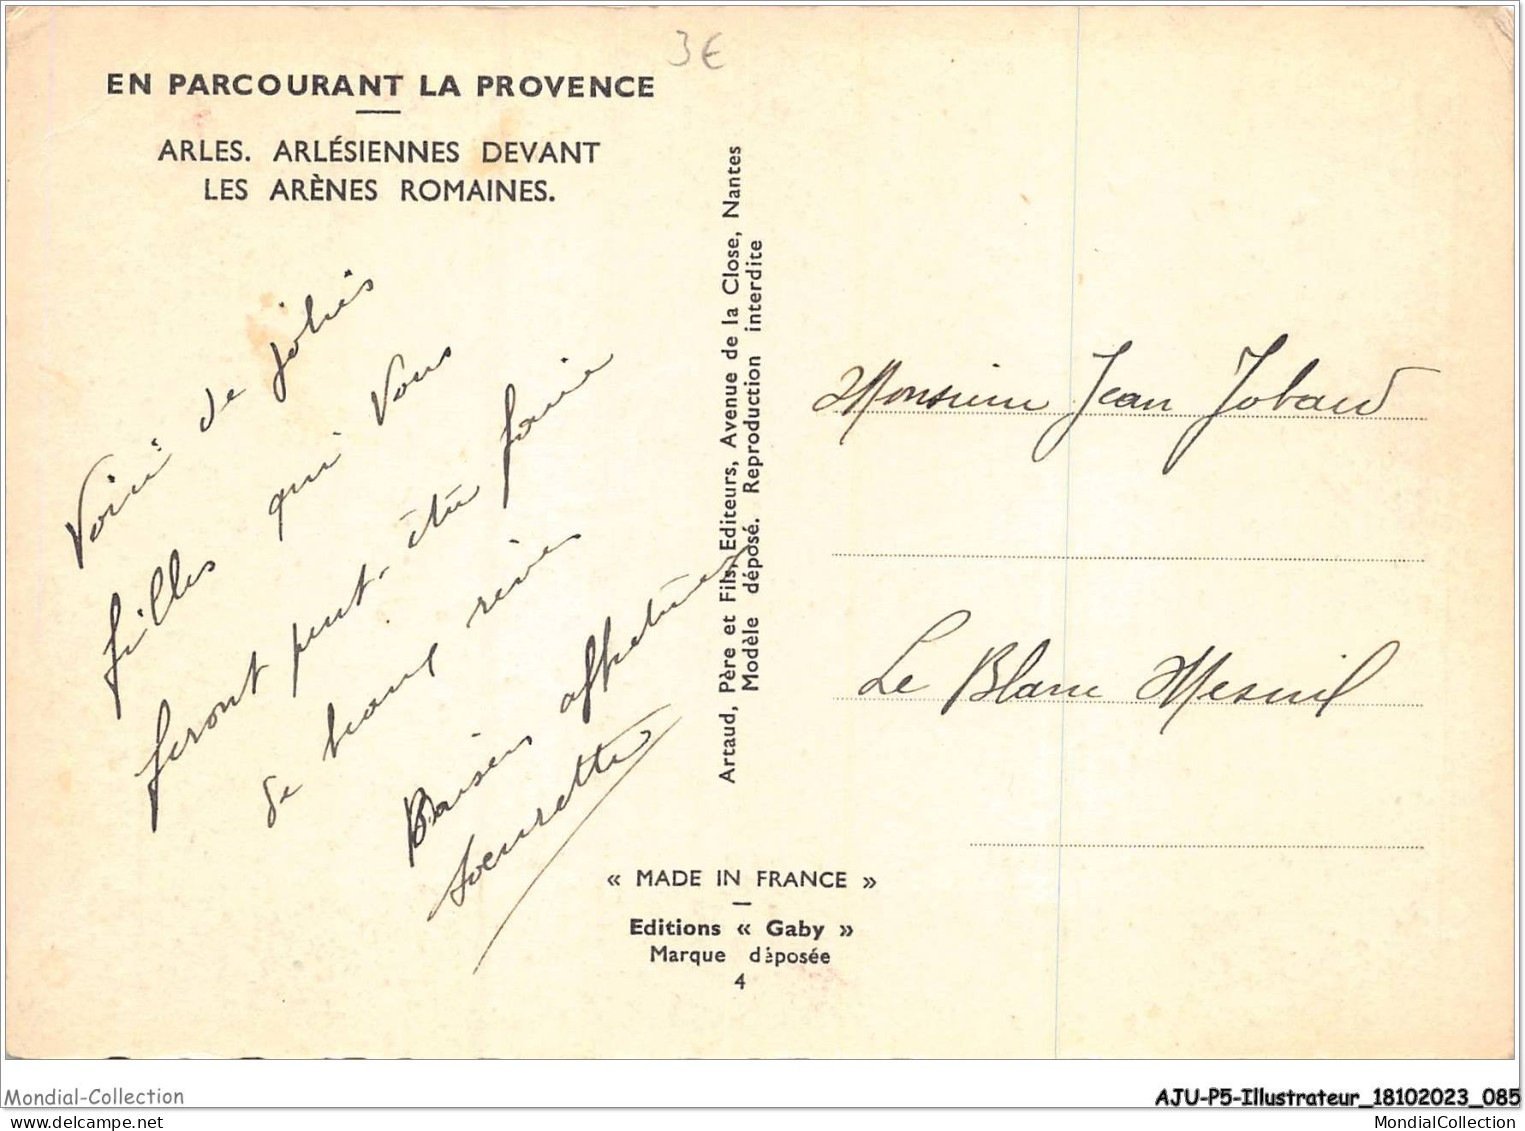 3€
EN PARCOURANT LA PROVENCE
ARLES. ARLÉSIENNES DEVANT
LES ARÈNES ROMAINES.
Voici de jolies
filles qui vous
feront peut-être faire
de beaux rêves
Baisers affectueux
Soeurette
Artaud, Père et Fils, Editeurs, Avenue de la Close, Nantes
Modèle déposé. Reproduction interdite
Monsieur Jean Jobard
Le Blanc Mesnil
« MADE IN FRANCE »
Editions « Gaby »
Marque déposée
4
Mondial-Collection
AJU-P5-Illustrateur_18102023_085
MondialCollection